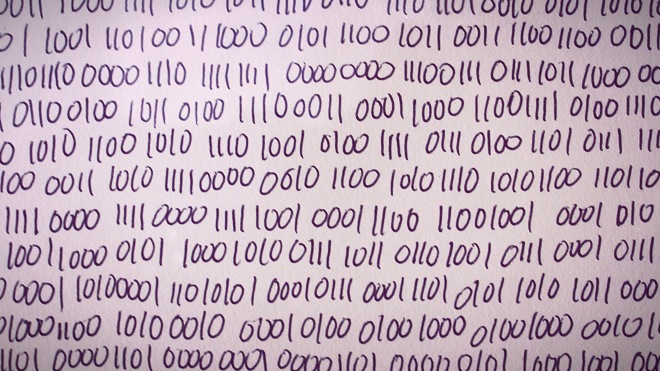 0011 1000 1111 1010 1011 1110 1101 0010 0101 1010
0 1 1001 11010011 1000 0101 1100 1011 0011 1100 1100 0011
11101110 00001110 11111111 00000000 11100111 01111011 1000 00
01100100 1011 0100 11100011 00011000 11001111 0100 1110
0 1010 1100 1010 1110 1001 0100 1111 0111 0100 1101 0111 111
100 0011 1010 11110000 0010 1100 1010 1110 10101100 110110
1111 0000 1111 0000 1111 1001 0001 1100 11001001 0001 010
10011000 0101 100010100111 1011 0110 1001 0111 0001 0111
00001 10100001 11010101 00010111 00011101 0101 1010 1011 000
010001100 10100010 00010100 01001000 01001000 0010
1101 00001101 00000001 00001101 00000101 1000 1001